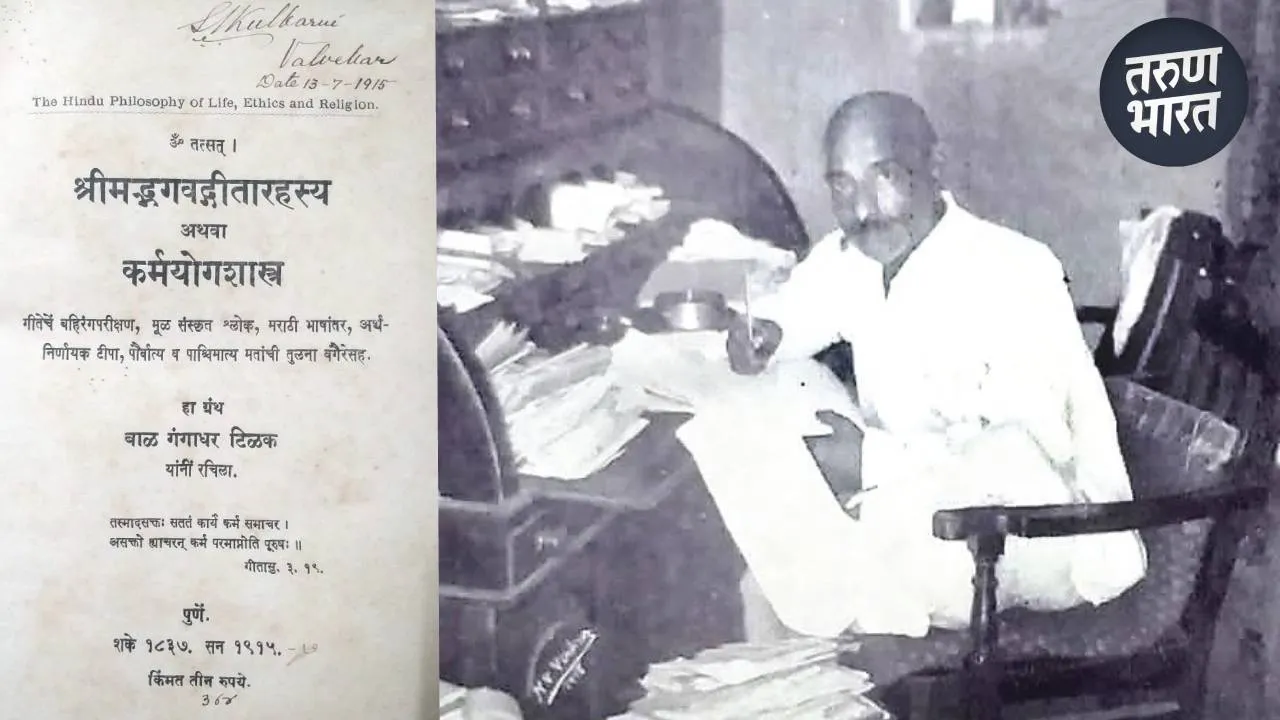 Kulkarni
Valvekar
Date 13-7-1915
The Hindu Philosophy of Life, Ethics and Religion.
ॐ तत्सत् ।
श्रीमद्भगवद्गीतारहस्य
अथवा
कर्मयोगशास्त्र
गीतेचें बहिरंगपरीक्षण, मूळ संस्कृत श्लोक, मराठी भाषांतर, अर्थ-
निर्णायक टीपा, पौर्वात्य व पाश्चिमात्य मतांची तुलना वगैरेसह.
हा ग्रंथ
बाळ गंगाधर टिळक
यांनीं रचिला.
तस्मादसक्तः सततं कार्यं कर्म समाचर ।
असक्तो ह्याचरन् कर्म परमाप्नोति पूरुषः ॥
गीतासु. ३. १९.
पुणें.
शके १८३७. सन १९१५.
किंमत तीन रुपये.
तरुण
भारत